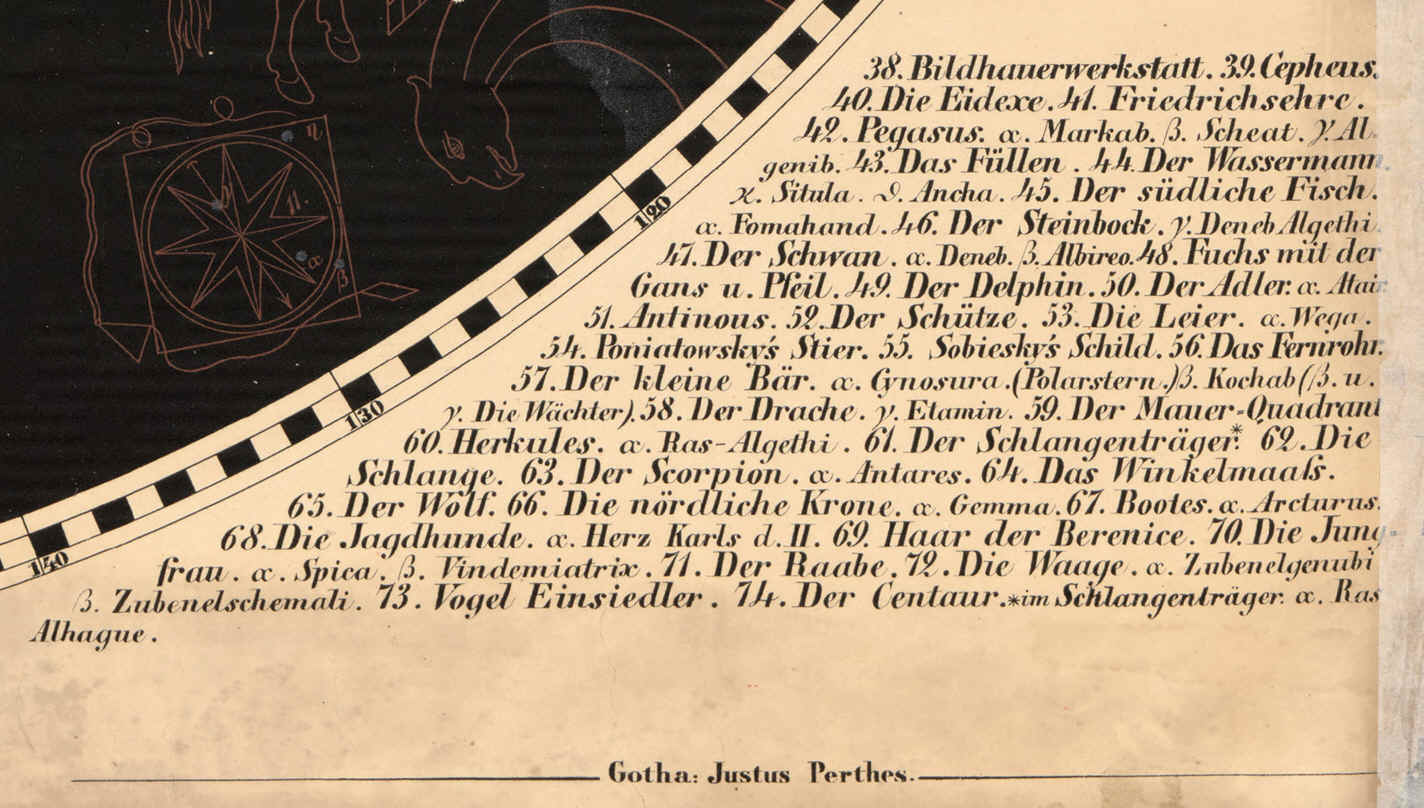 38. Bildhauerwerkstatt. 39. Cepheus.
40. Die Eidexe. 41. Friedrichsehre.
42. Pegasus. α. Markab. β. Scheat. γ. Al
genib. 43. Das Füllen. 44. Der Wassermann.
ϰ. Situla. ϑ. Ancha. 45. Der südliche Fisch.
α. Fomahand. 46. Der Steinbock. γ. Deneb Algethi
47. Der Schwan. α. Deneb. β. Albireo. 48. Fuchs mit der
Gans u. Pfeil. 49. Der Delphin. 50. Der Adler. α. Atair
51. Antinous. 52. Der Schütze. 53. Die Leier. α. Wega.
54. Poniatowsky's Stier. 55. Sobiesky's Schild. 56. Das Fernrohr.
57. Der kleine Bär. α. Cynosura. (Polarstern.) β. Kochab (β. u.
γ. Die Wächter). 58. Der Drache. γ. Etamin. 59. Der Mauer-Quadrant
60. Herkules. α. Ras-Algethi. 61. Der Schlangenträger.* 62. Die
Schlange. 63. Der Scorpion. α. Antares. 64. Das Winkelmaaſs.
65. Der Wolf. 66. Die nördliche Krone. α. Gemma. 67. Bootes. α. Arcturus.
68. Die Jagdhunde. α. Herz Karls d. II. 69. Haar der Berenice. 70. Die Jung-
frau. α. Spica. β. Vindemiatrix. 71. Der Raabe. 72. Die Waage. α. Zubenelgenubi
β. Zubenelschemali. 73. Vogel Einsiedler. 74. Der Centaur. *im Schlangenträger. α. Ras
Alhague.
120
130
140
η
11.
α
β
Gotha: Justus Perthes.